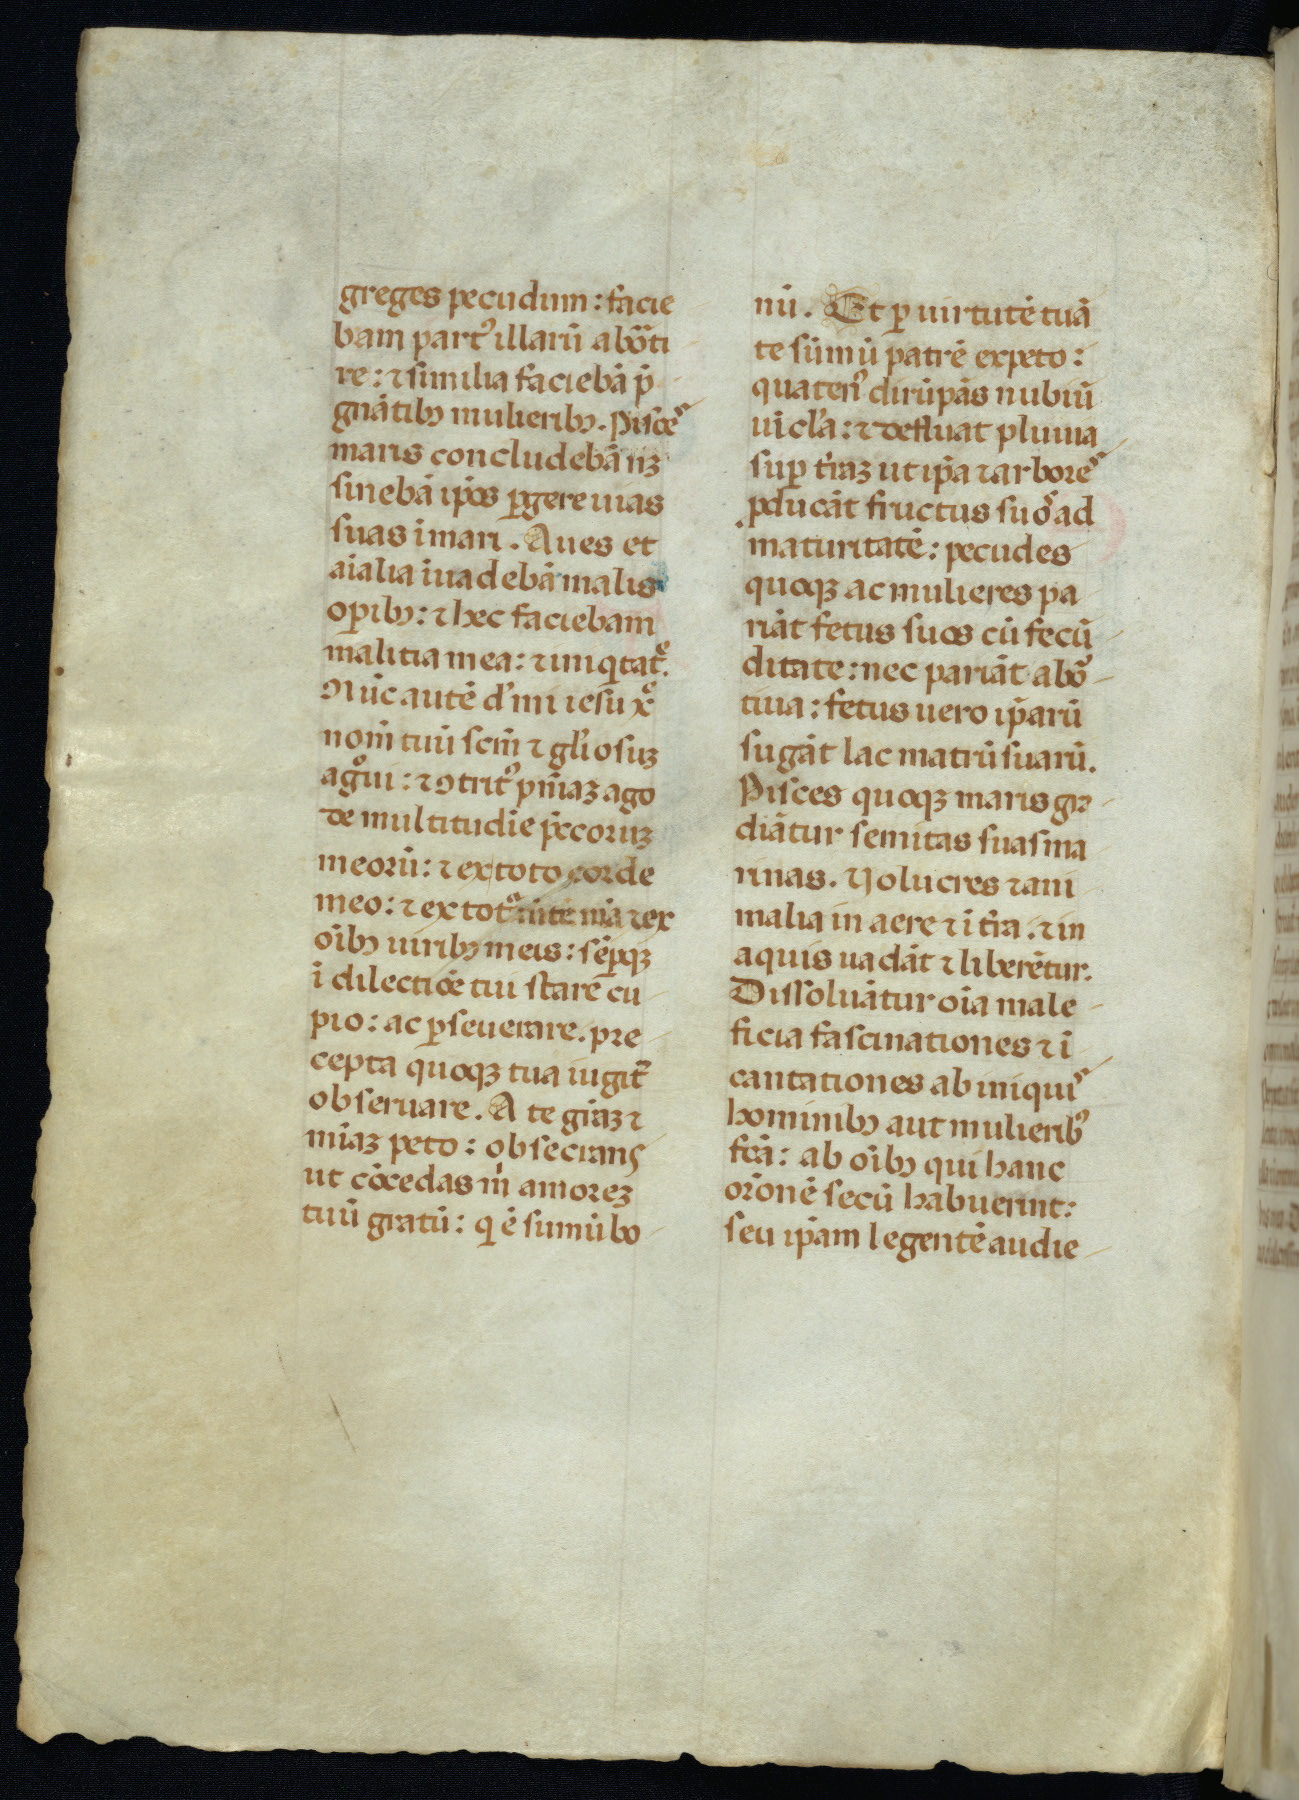 greges pecudum: facie
bam part᾽ illarū abōti
re: ⁊ similia faciebā p̄
gnātibꝰ mulieribꝰ. Pisce᷒
maris concludebā nꝫ
sinebā ip̄os ꝑgere uias
suas ī mari. Aues et
aīalia īuadebā malis
oꝑibꝰ: ⁊ hec faciebam
malitia mea: ⁊ iniqtate.
Nūc autē d᾽ mi iesu xͤ
nom̄ tuū scm̄ ⁊ gl᾽iosuꝫ
agͦui: ⁊ ꝯtrit᾽ pn̄iaꝫ ago
de multitudīe pc̄coruꝫ
meorū: ⁊ ex toto corde
meo: ⁊ ex totͣ mēte mīa ⁊ ex
oībꝰ uiribꝰ meis: sēꝑqꝫ
ī dilectiōe tui stare cu
pio: ac ꝑseuerare. pre
cepta quoqꝫ tua iugit᷑
obseruare. A te grāꝫ ⁊
mīaꝫ peto: obsecrans
ut cōcedas m̄ amoreꝫ
tuū gratū: q ē sumū bo
nū. Et ꝑ uirtutē tuā
te sūmū patrē expeto:
quaten᾽ dirūpās nubiū
uīcl᾽a: ⁊ defluat pluuia
suꝑ t᾽raꝫ ut ip̄a ⁊ arbore᷒
ꝓducāt fructus suo᷒ ad
maturitatē: pecudes
quoqꝫ ac mulieres pa
riāt fetus suos cū fecū
ditate: nec pariāt abō
tiua: fetus uero ip̄arū
sugāt lac matrū suarū.
Pisces quoqꝫ maris gra
diātur semitas suas ma
rinas. Uolucres ⁊ ani
malia in aere ⁊ ī t᾽ra. ⁊ in
aquis uadāt ⁊ liberētur.
Dissoluātur oīa male
ficia fascinationes ⁊ ī
cantationes ab iniqui᷒
hominibꝰ aut mulierib᾽
fcā: ab oībꝰ qui hanc
orōnē secū habuerint:
seu ip̄am legentē audie